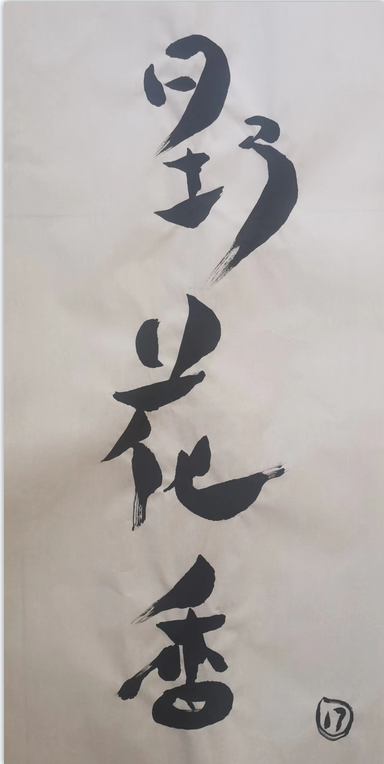 野花香
17